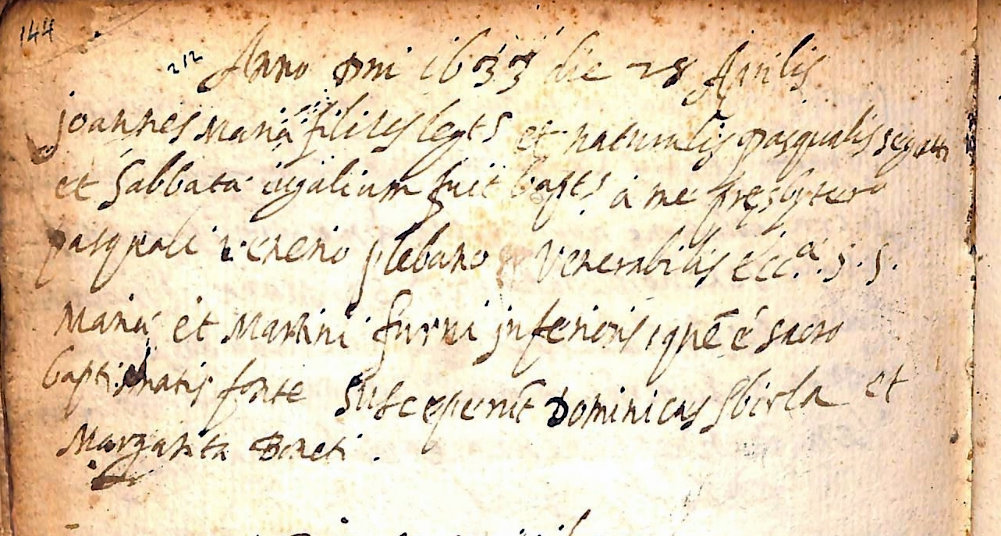 144
212 Anno Dni 1633 die 28 Aprilis
Joannes Maria filius legts et naturalis pasqualis segatti
et Sabbata iugalium fuit bapts à me presbytero
pasquale venerio plebano Venerabilis eccæ. S. S.
Mariæ et Martini furni inferioris, quē é sacro
baptismatis fonte susceperūt Dominicus Sbirla et
Margarita Boneti.